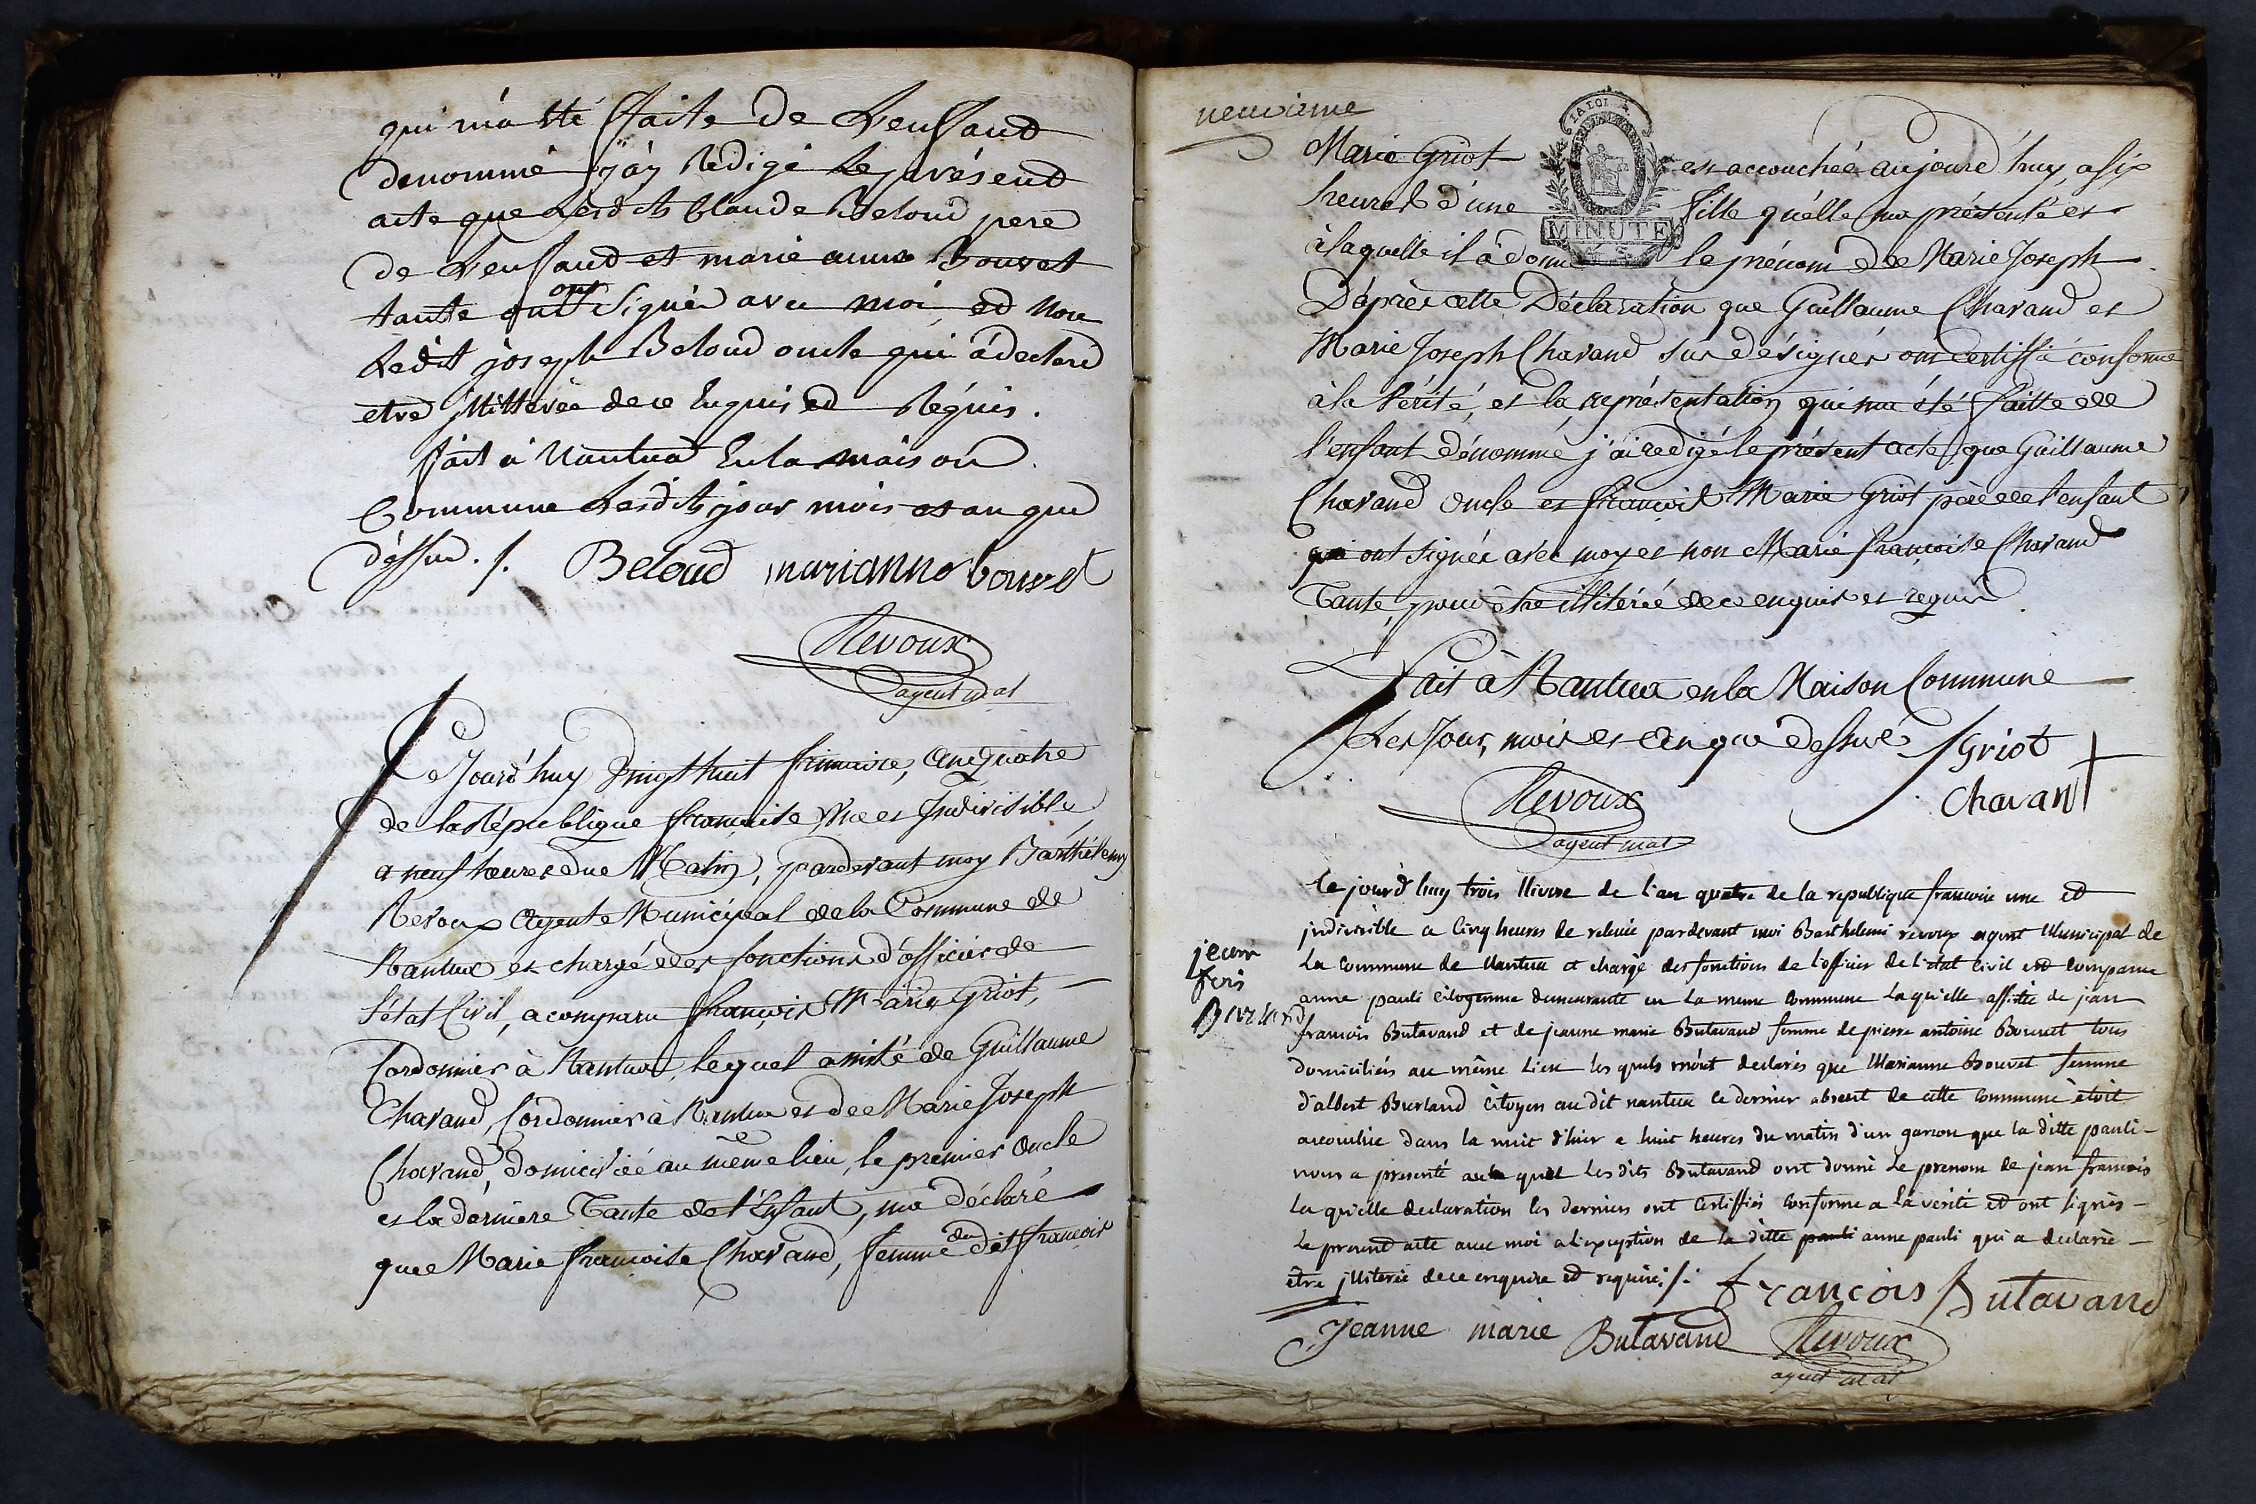 qui m'a été ffaite de L'enffand
denommé j'ay Rédigé Le présend
acte que Lesdits Claude Beloud pere
de L'enffand et marie anne Bouvet
tante ont Signée avec moi, ed Non
Ledit joseph Beloud oncle qui à déclaré
etre jllittérée de ce Enquis ed Réquis.
ffait à Nantua En la maison
Commune Lesdits jour mois et an que
dessus ./. Beloud marianne bouvet
Revoux
agent mal
Ce Jourd'huy Vingt huit frimaire, an quatre
de la République francaise Une et Indivisible
a neuf heures du Matin, pardevant moy Barthélemy
Revoux Agente Municipal de la Commune de
Nantua et chargé des fonctions d'officier de
l'état Civil, a comparu françois Marie Griot,
Cordonnier à Nantua, lequel assisté de Guillaume
Chavand, Cordonnier à Nantua et de Marie Joseph
Chavand, domiciliée au même lieu, le premier Oncle
et la dernière Tante de l'Enfant, m'a déclaré
que Marie francoise Chavand, femme du dit francois
neuvième
LA LOI
MINUTE
Marie Griot est accouchée aujourd'huy, a six
heures d'une fille qu'elle ma présenté et
à laquelle il à donné le prénom de Marie Joseph
D'après cette Déclaration que Guillaume Chavand et
Marie Joseph Chavand sus désignés ont certiffié conforme
à la Vérité, et la représentation qui ma été faitte de
l'enfant dénommé j'ai redigé le présent acte que Guillaume
Chavand Oncle et francois Marie Griot père de l'enfant
qui ont signée avec moy et non Marie francoise Chavand
Tante, pour être illitérée de ce enquis et requis
Fait à Nantua en la Maison Commune
Les Jour, mois et An que dessus Griot
Revoux chavant
agent mal
jean
fcois
Burland
Ce jourd'huy trois Nivose de l'an quatre de la republique francoise une et
jndivisible a Cinq heures de relevée pardevant moi Barthelemi revoux agent Municipal de
La Commune de Nantua et chargé des fonctions de l'officier de l'état Civil est comparue
anne pauli Citoyenne demeurante en La meme Commune Laquelle assistée de jean
francois Butavand et de jeanne marie Butavand femme de pierre antoine Bouvet tous
domiciliés au même Lieu Les quels m'ont declarés que Marianne Bouvet femme
d'albert Burland Citoyen au dit nantua Ce dernier absent de cette Commune étoit
accouchée dans la nuit d'hier a huit heures du matin d'un garcon que la ditte pauli
nous a presenté au quel Les dits Butavand ont donné Le prenom de jean francois
La quelle declaration les derniers ont Certiffiés Conforme a la vérité et ont signés
Le present acte avec moi a l'exception de la ditte pauli anne pauli qui a declaré
être jlliterée de ce enquise et requise ./. francois Butavand
Jeanne marie Butavand Revoux
agent mal